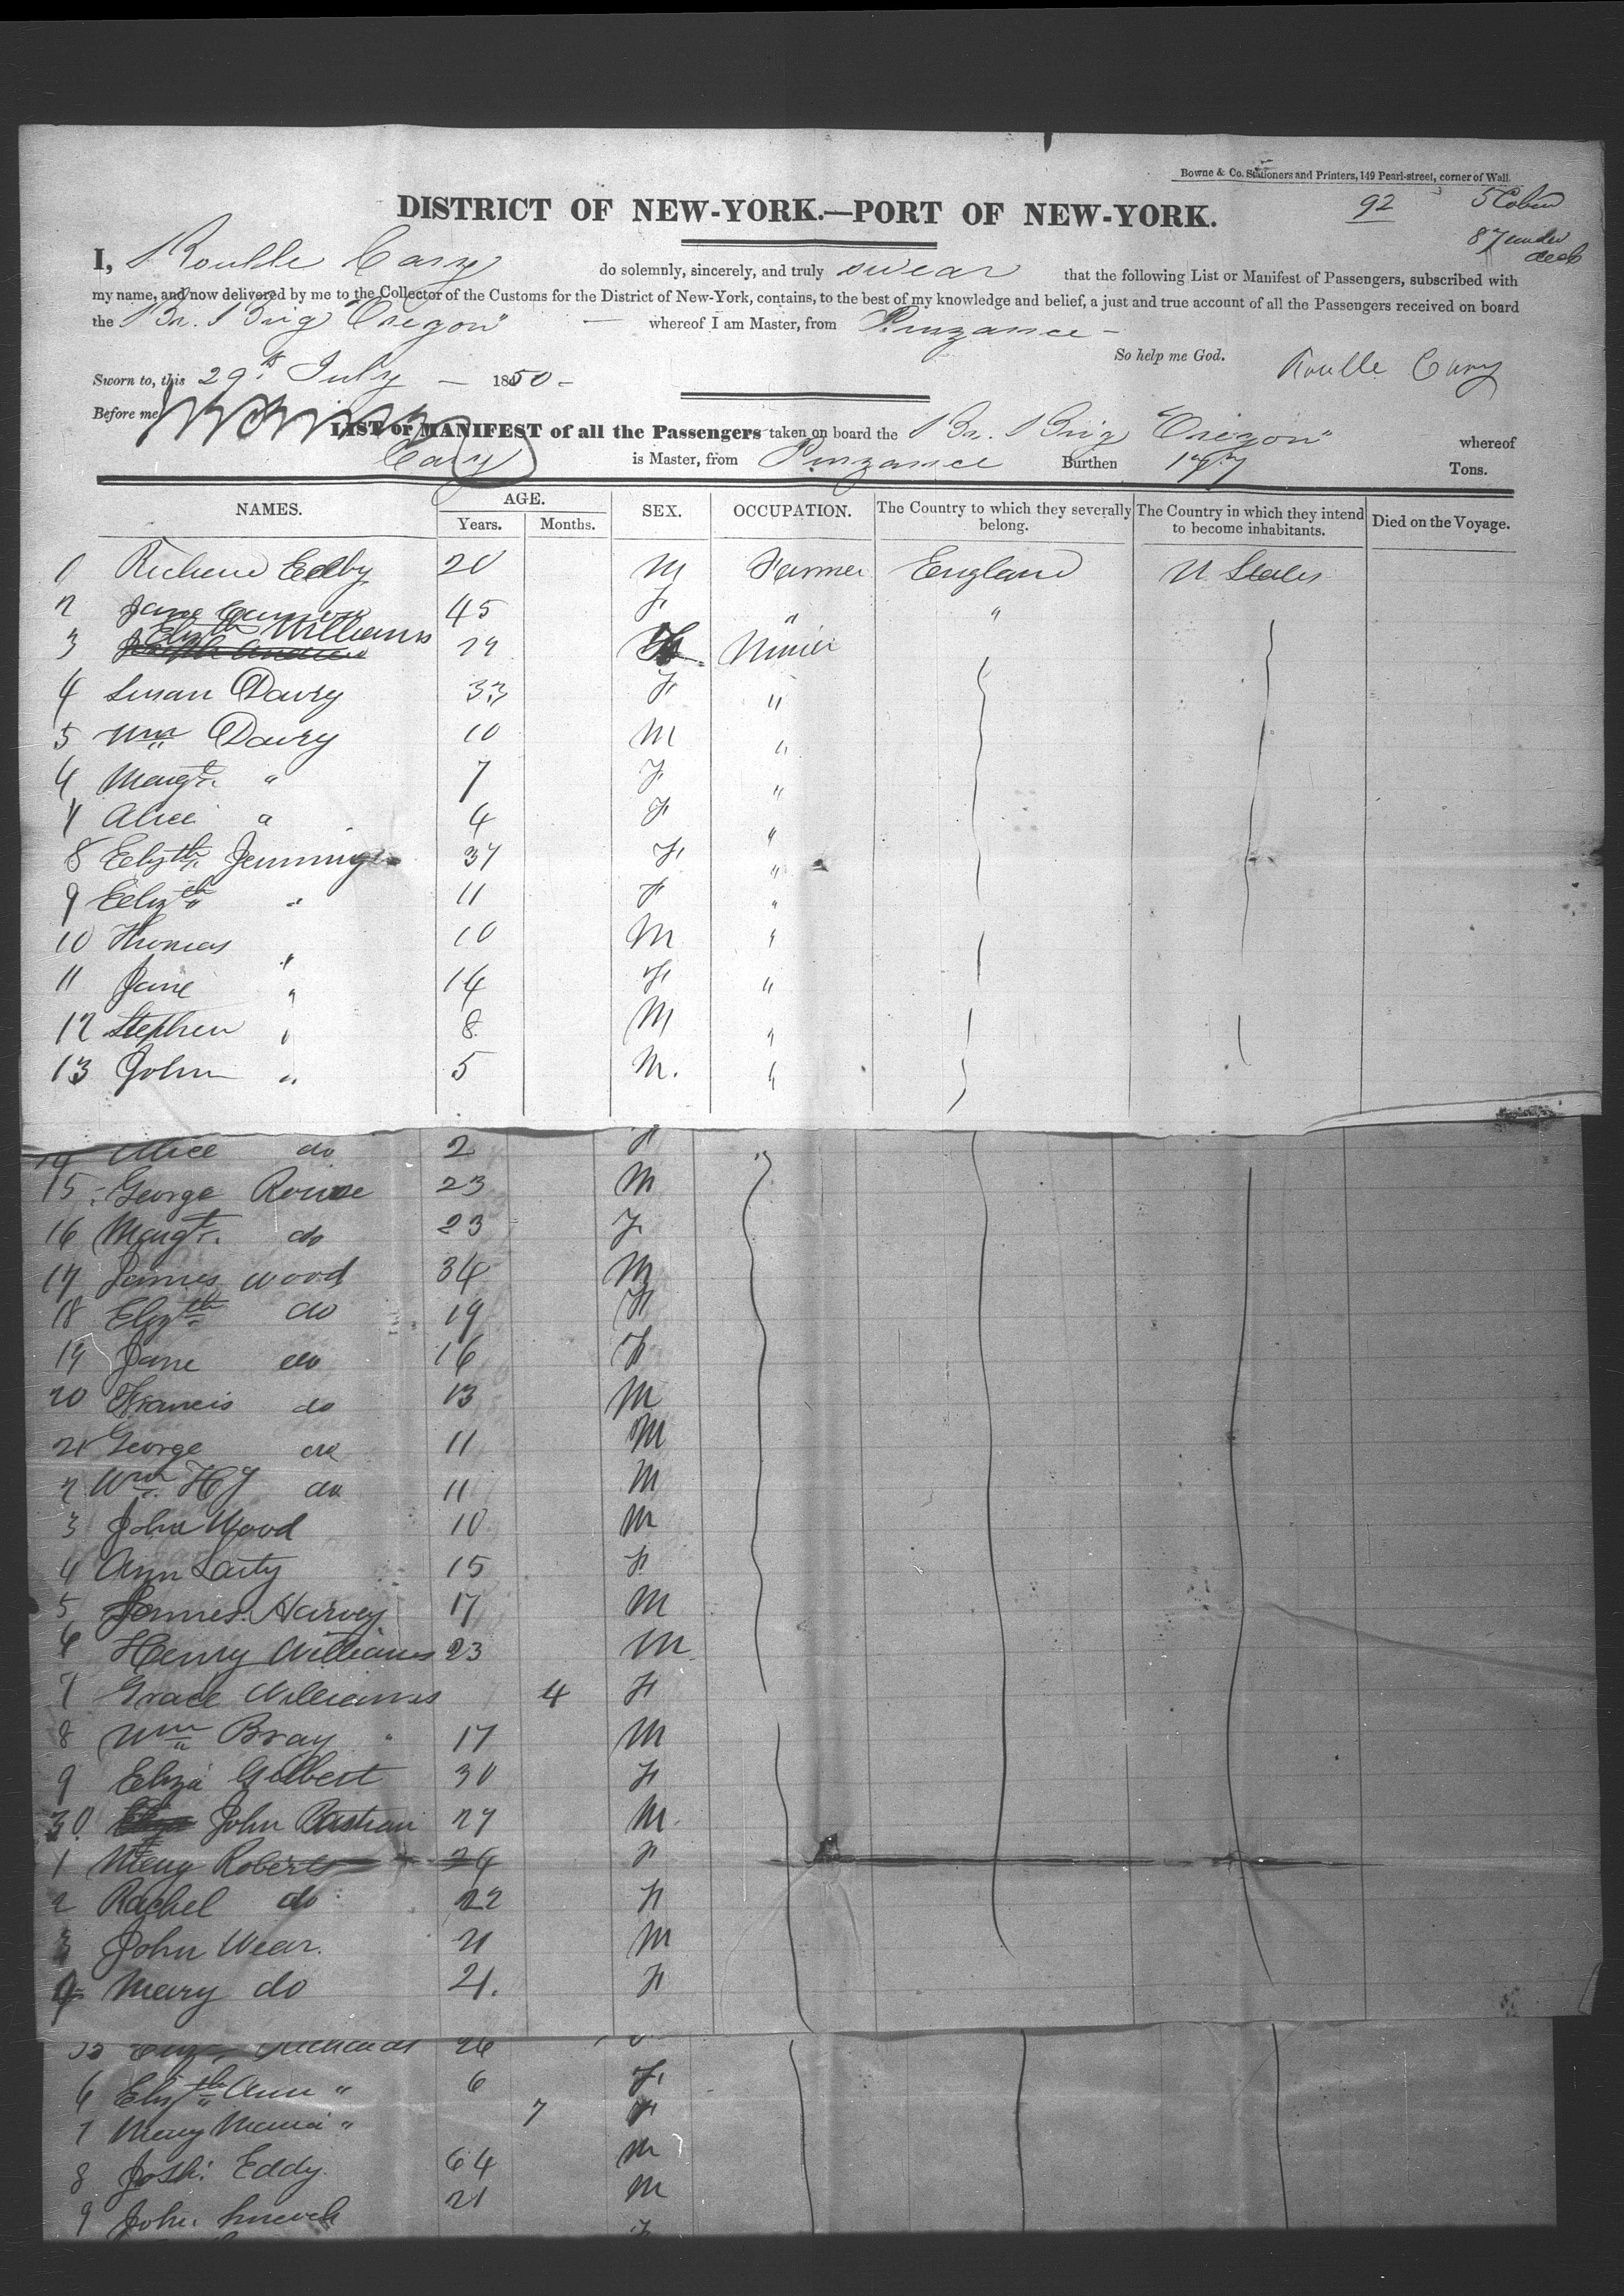 Bowne & Co. Stationers and Printers, 149 Pearl-street, corner of Wall.
DISTRICT OF NEW-YORK.—PORT OF NEW-YORK.
92
8 under deck
I, Cary do solemnly, sincerely, and truly swear that the following List or Manifest of Passengers, subscribed with
my name, and now delivered by me to the Collector of the Customs for the District of New-York, contains, to the best of my knowledge and belief, a just and true account of all the Passengers received on board
the Br. Brig "Oregon" — whereof I am Master, from Penzance —
So help me God. Cary
Sworn to, this 29th July — 1850 —
Before me,
LIST or MANIFEST of all the Passengers taken on board the Br. Brig "Oregon" whereof
Cary is Master, from Penzance Burthen Tons.
NAMES. AGE. SEX. OCCUPATION. The Country to which they severally belong. The Country in which they intend to become inhabitants. Died on the Voyage.
Years. Months.
1 20 M Farmer England U States
2 Jane 45 F " "
3 Elizth Williams F Minier
4 Susan Davy 33 F "
5 Wm Davy 10 M "
6 Margt. " 7 F "
7 Alice " 4 F "
8 Elizth. Jennings 37 F "
9 Elizth " 11 F "
10 Thomas " 10 M "
11 Jane " 14 F "
12 Stephen " 8 M "
13 John " 5 M. "
14 Alice do 2 F "
15 George Rowse 23 M
16 Margt. do 23 F
17 James Wood 34 M
18 Elizth do 19 F
19 Jane do 16 F
20 Francis do 13 M
21 George do 11 M
2 Wm. do 11 M
3 John Wood 10 M
4 Ann Laity 15 F
5 James Harvey 17 M
6 Henry Williams 23 M
7 Grace Williams 4 F
8 Wm Bray 17 M
9 Eliza Gilbert 30 F
30 John Bastian 27 M.
1 Mary Roberts 24 F
2 Rachel do 22 F
3 John Wear. 21 M
4 Mary do 21. F
35 26
6 Elizth Ann " 6 F
7 Mary Maria " 7 F
8 Josh. Eddy 64 M
9 John 21 M